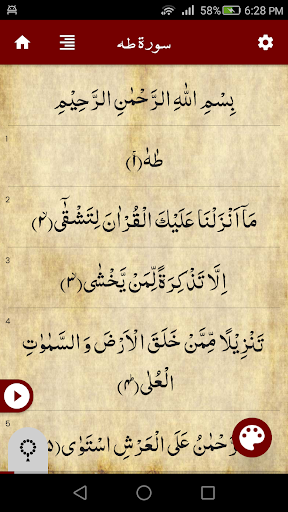 58% 6:28 PM
سورة طه
بِسْمِ اللهِ الرَّحْمٰنِ الرَّحِيْمِ
1
طٰهٰ ﴿۱﴾
2
مَاۤ اَنْزَلْنَا عَلَيْكَ الْقُرْاٰنَ لِتَشْقٰۤى ﴿۲﴾
3
اِلَّا تَذْكِرَةً لِّمَنْ يَّخْشٰى ﴿۳﴾
4
تَنْزِيْلًا مِّمَّنْ خَلَقَ الْاَرْضَ وَ السَّمٰوٰتِ
الْعُلٰى ﴿۴﴾
5
حْمٰنُ عَلَى الْعَرْشِ اسْتَوٰى ﴿۵